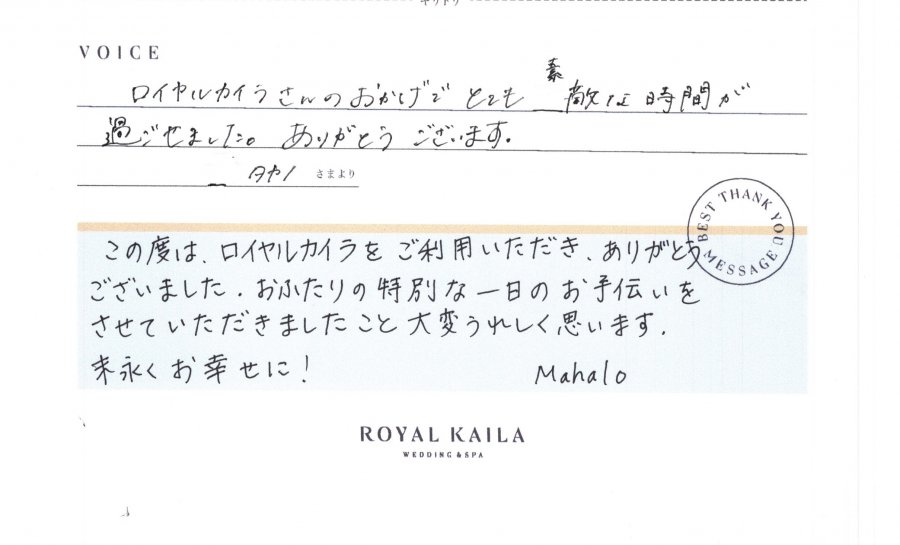 VOICE
ロイヤルカイラさんのおかげでとても素敵な時間が
過ごせました。ありがとうございます。
さまより
BEST THANK YOU MESSAGE
この度は、ロイヤルカイラをご利用いただき、ありがとう
ございました。おふたりの特別な一日のお手伝いを
させていただきましたこと大変うれしく思います。
末永くお幸せに!
Mahalo
ROYAL KAILA
WEDDING & SPA